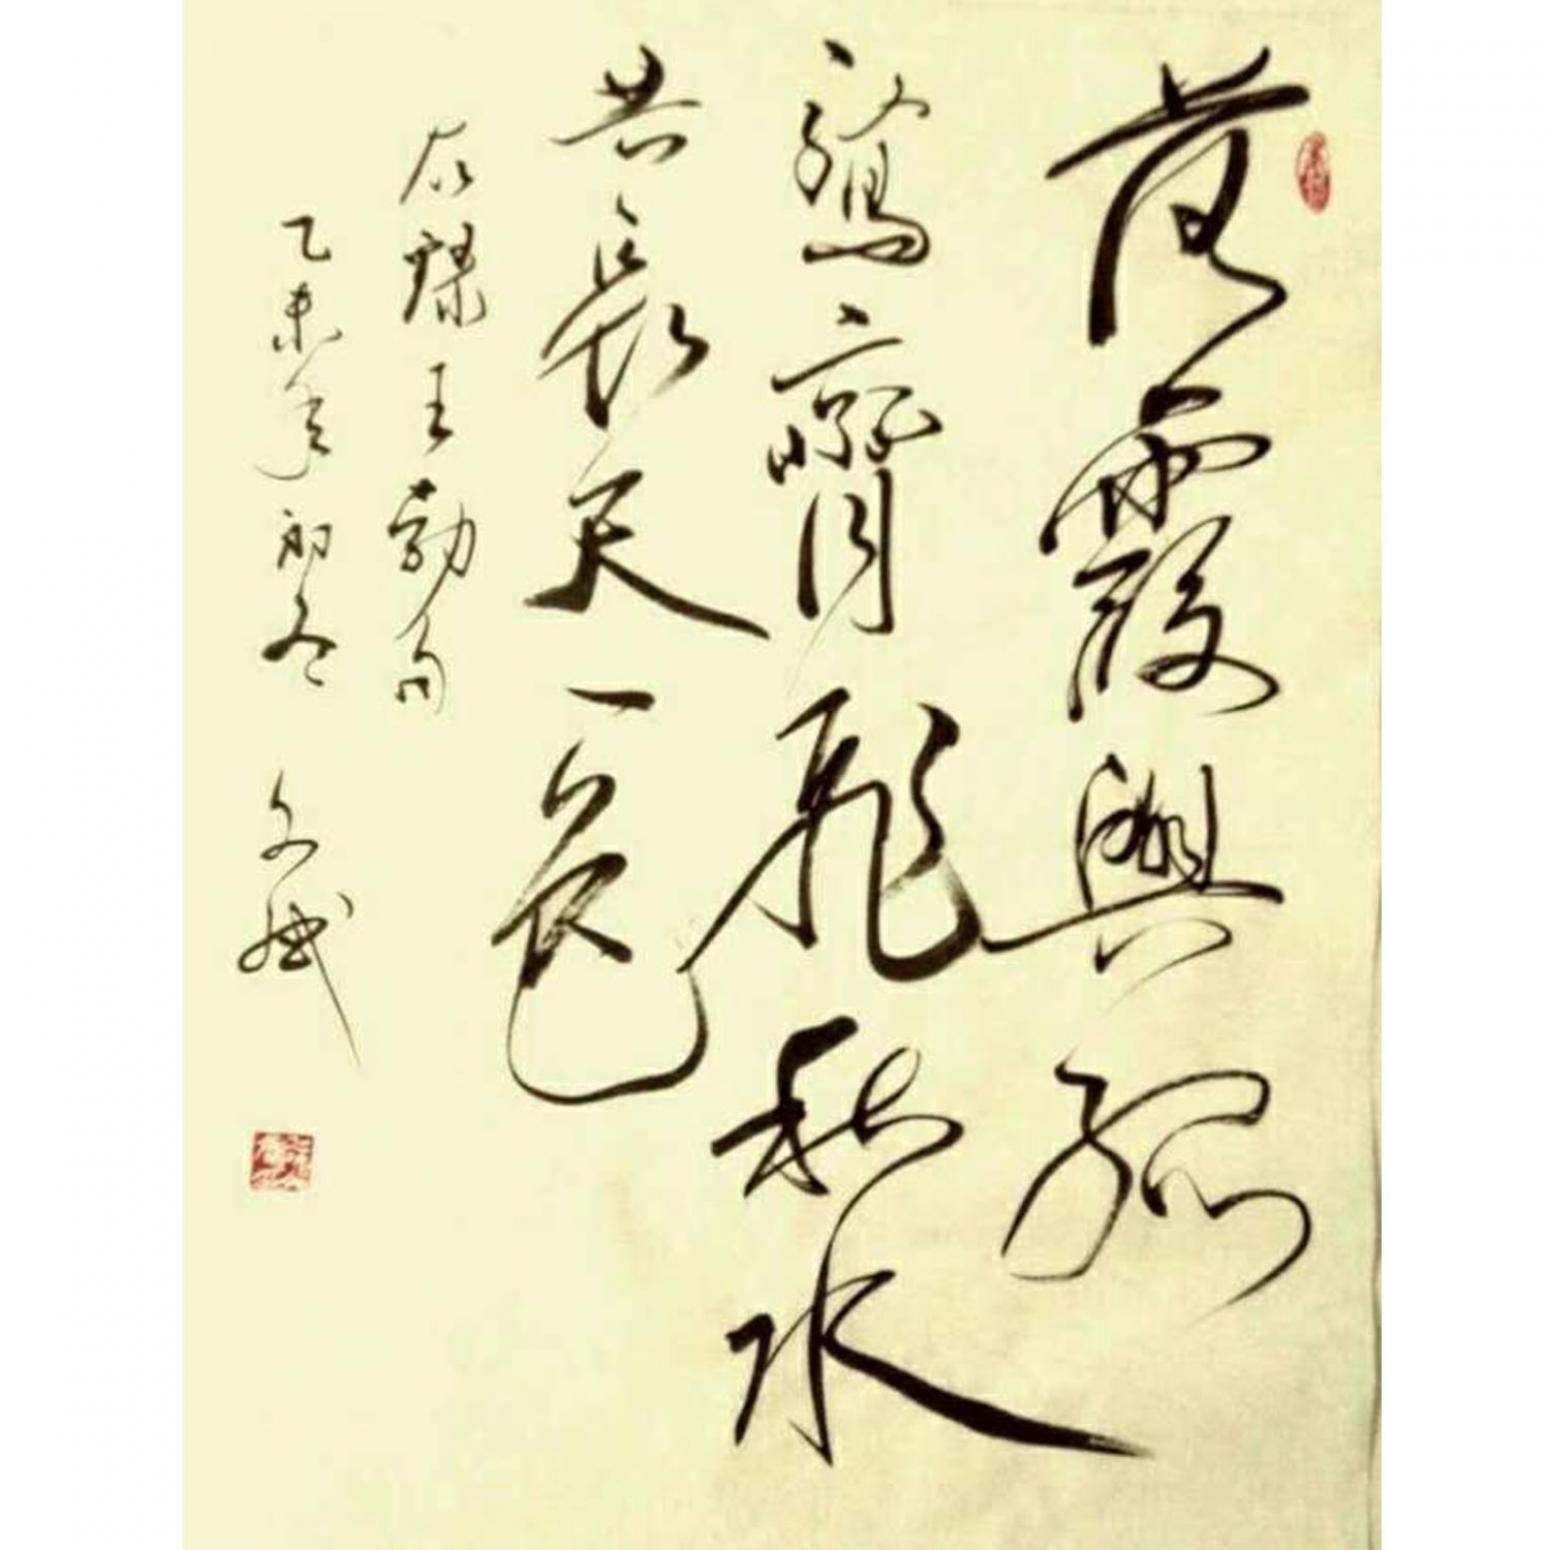 落霞與孤
鶩齊飛秋水
共長天一色
右錄王勃句
乙未年初冬 文斌